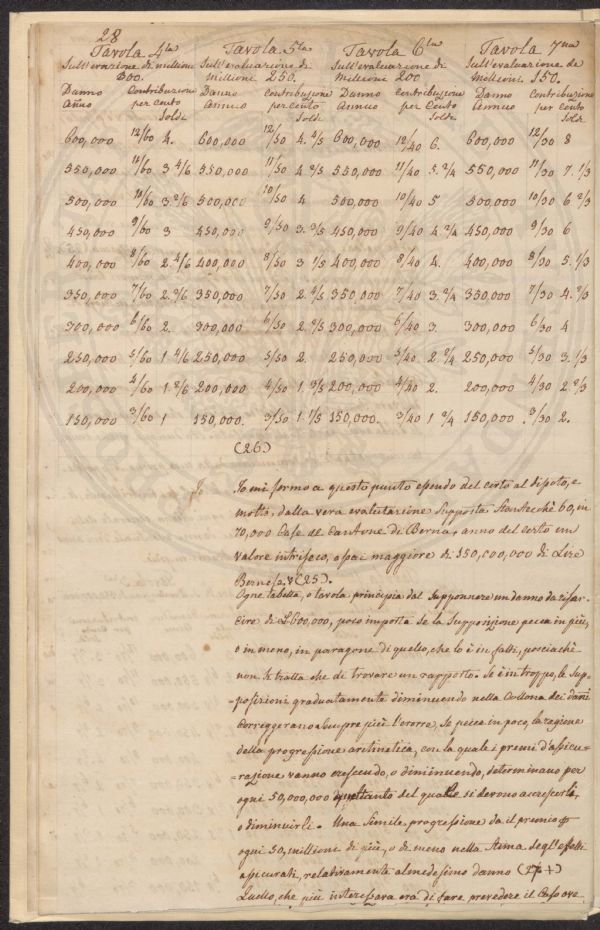 28
Tavola 4ta Tavola 5ta Tavola 6ta Tavola 7ma
Sull'evazione di millioni Sull'evaluazione di Sull'evaluazione di Sull'evaluazione de
300. millioni 250. millioni 200 millioni. 150.
Danno Contribuzioni Danno Contribuzione Danno Contribuzione Danno Contribuzione
Annuo per cento Annuo per cento Annuo per Cento Annuo per Cento
Soldi Soldi Soldi Soldi
600,000 12/60 4. 600,000 12/50 4. 4/5 600,000 12/40 6. 600,000 12/30 8
550,000 11/60 3 4/6 550,000 11/50 4. 2/5 550,000 11/40 5. 2/4 550,000 11/30 7. 1/3
500,000 10/60 3. 2/6 500,000 10/50 4 500,000 10/40 5 500,000 10/30 6 2/3
450,000 9/60 3 450,000 9/50 3. 3/5 450,000 9/40 4 2/4 450,000 9/30 6
400,000 8/60 2. 4/6 400,000 8/50 3 1/5 400,000 8/40 4. 400,000 8/30 5. 1/3
350,000 7/60 2. 2/6 350,000 7/50 2. 4/5 350,000 7/40 3. 2/4 350,000 7/30 4. 2/3
300,000 6/60 2. 300,000 6/50 2 2/5 300,000 6/40 3. 300,000 6/30 4
250,000 5/60 1 4/6 250,000 5/50 2. 250,000 5/40 2. 2/4 250,000 5/30 3. 1/3
200,000 4/60 1 2/6 200,000 4/50 1 3/5 200,000 4/40 2. 200,000 4/30 2. 2/3
150,000 3/60 1 150,000. 3/50 1 1/5 150,000. 3/40 1 2/4 150,000. 3/30 2.
(26.)
Io Io mi formo a questo punto essendo del certo al disoto, e
molto, dalla vera evalutazione Supposta stantechè 60, in
70,000 Case del Cantone di Berna, anno del certo un
valore intrifeco, assai maggiore di 150,000,000 di Lire
Bernese (25).
Ogne tabella, o tavola principia dal Supponnere un danno da risar-
cire di £600,000, poco importa se la Supposizione pecca in più,
o in meno, in paragone di quello, che lo è in fatti, posciachè
non si tratta che di trovare un rapporto. Se è in troppo, le Sup-
=posizioni graduatamente diminuendo nella Collona dei danni
Correggerano Sempre più l'errore, Se pecca in poco, la regione
della progressione aritmetica, con la quale i premi d'assicu-
=razione vanno crescendo, o diminuendo, determinano per
ogni 50,000,000 quel tanto del quale si devono accrescerli,
o diminuirli. Una Simile progressione da il premio pr
ogni 50, millioni di più, o di meno nella stima degl'effetti
assicurati, relativamente al medesimo danno (27+)
Quello, che più interessava era di fare prevedere il Caso ove